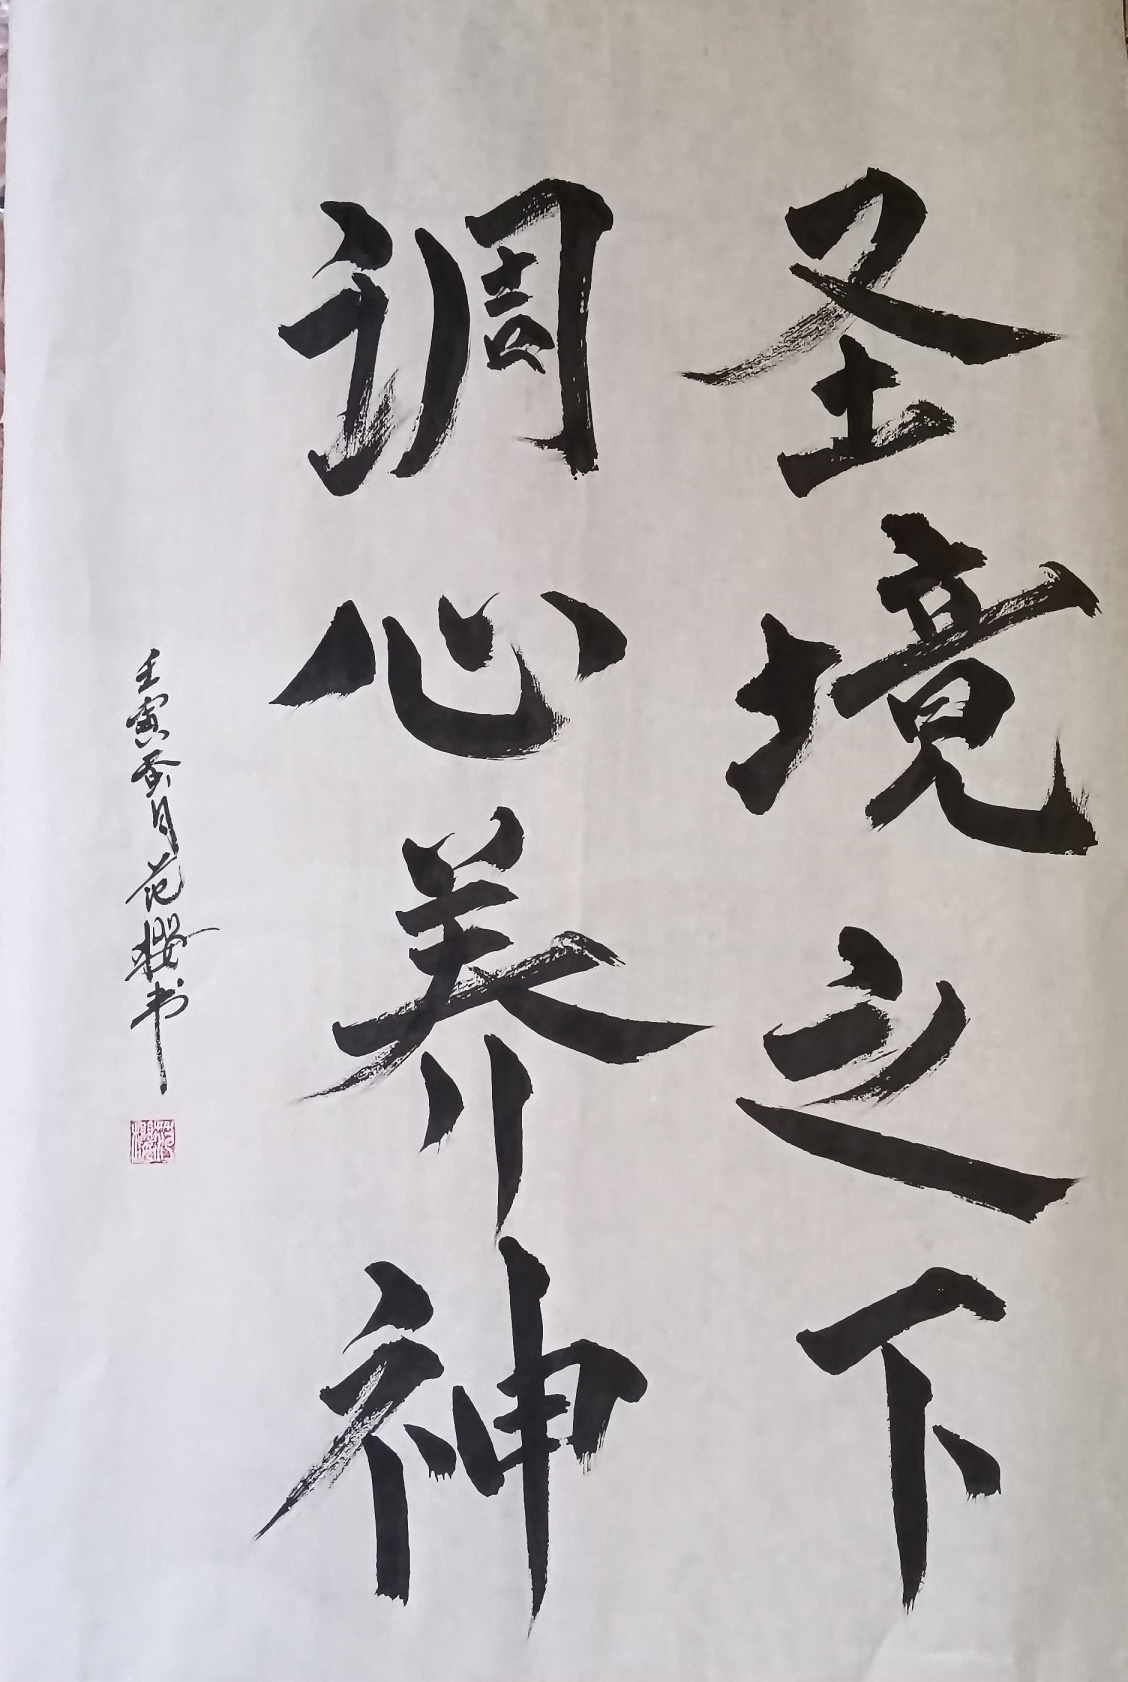 圣境之下
调心养神
壬寅蚕月范樱书